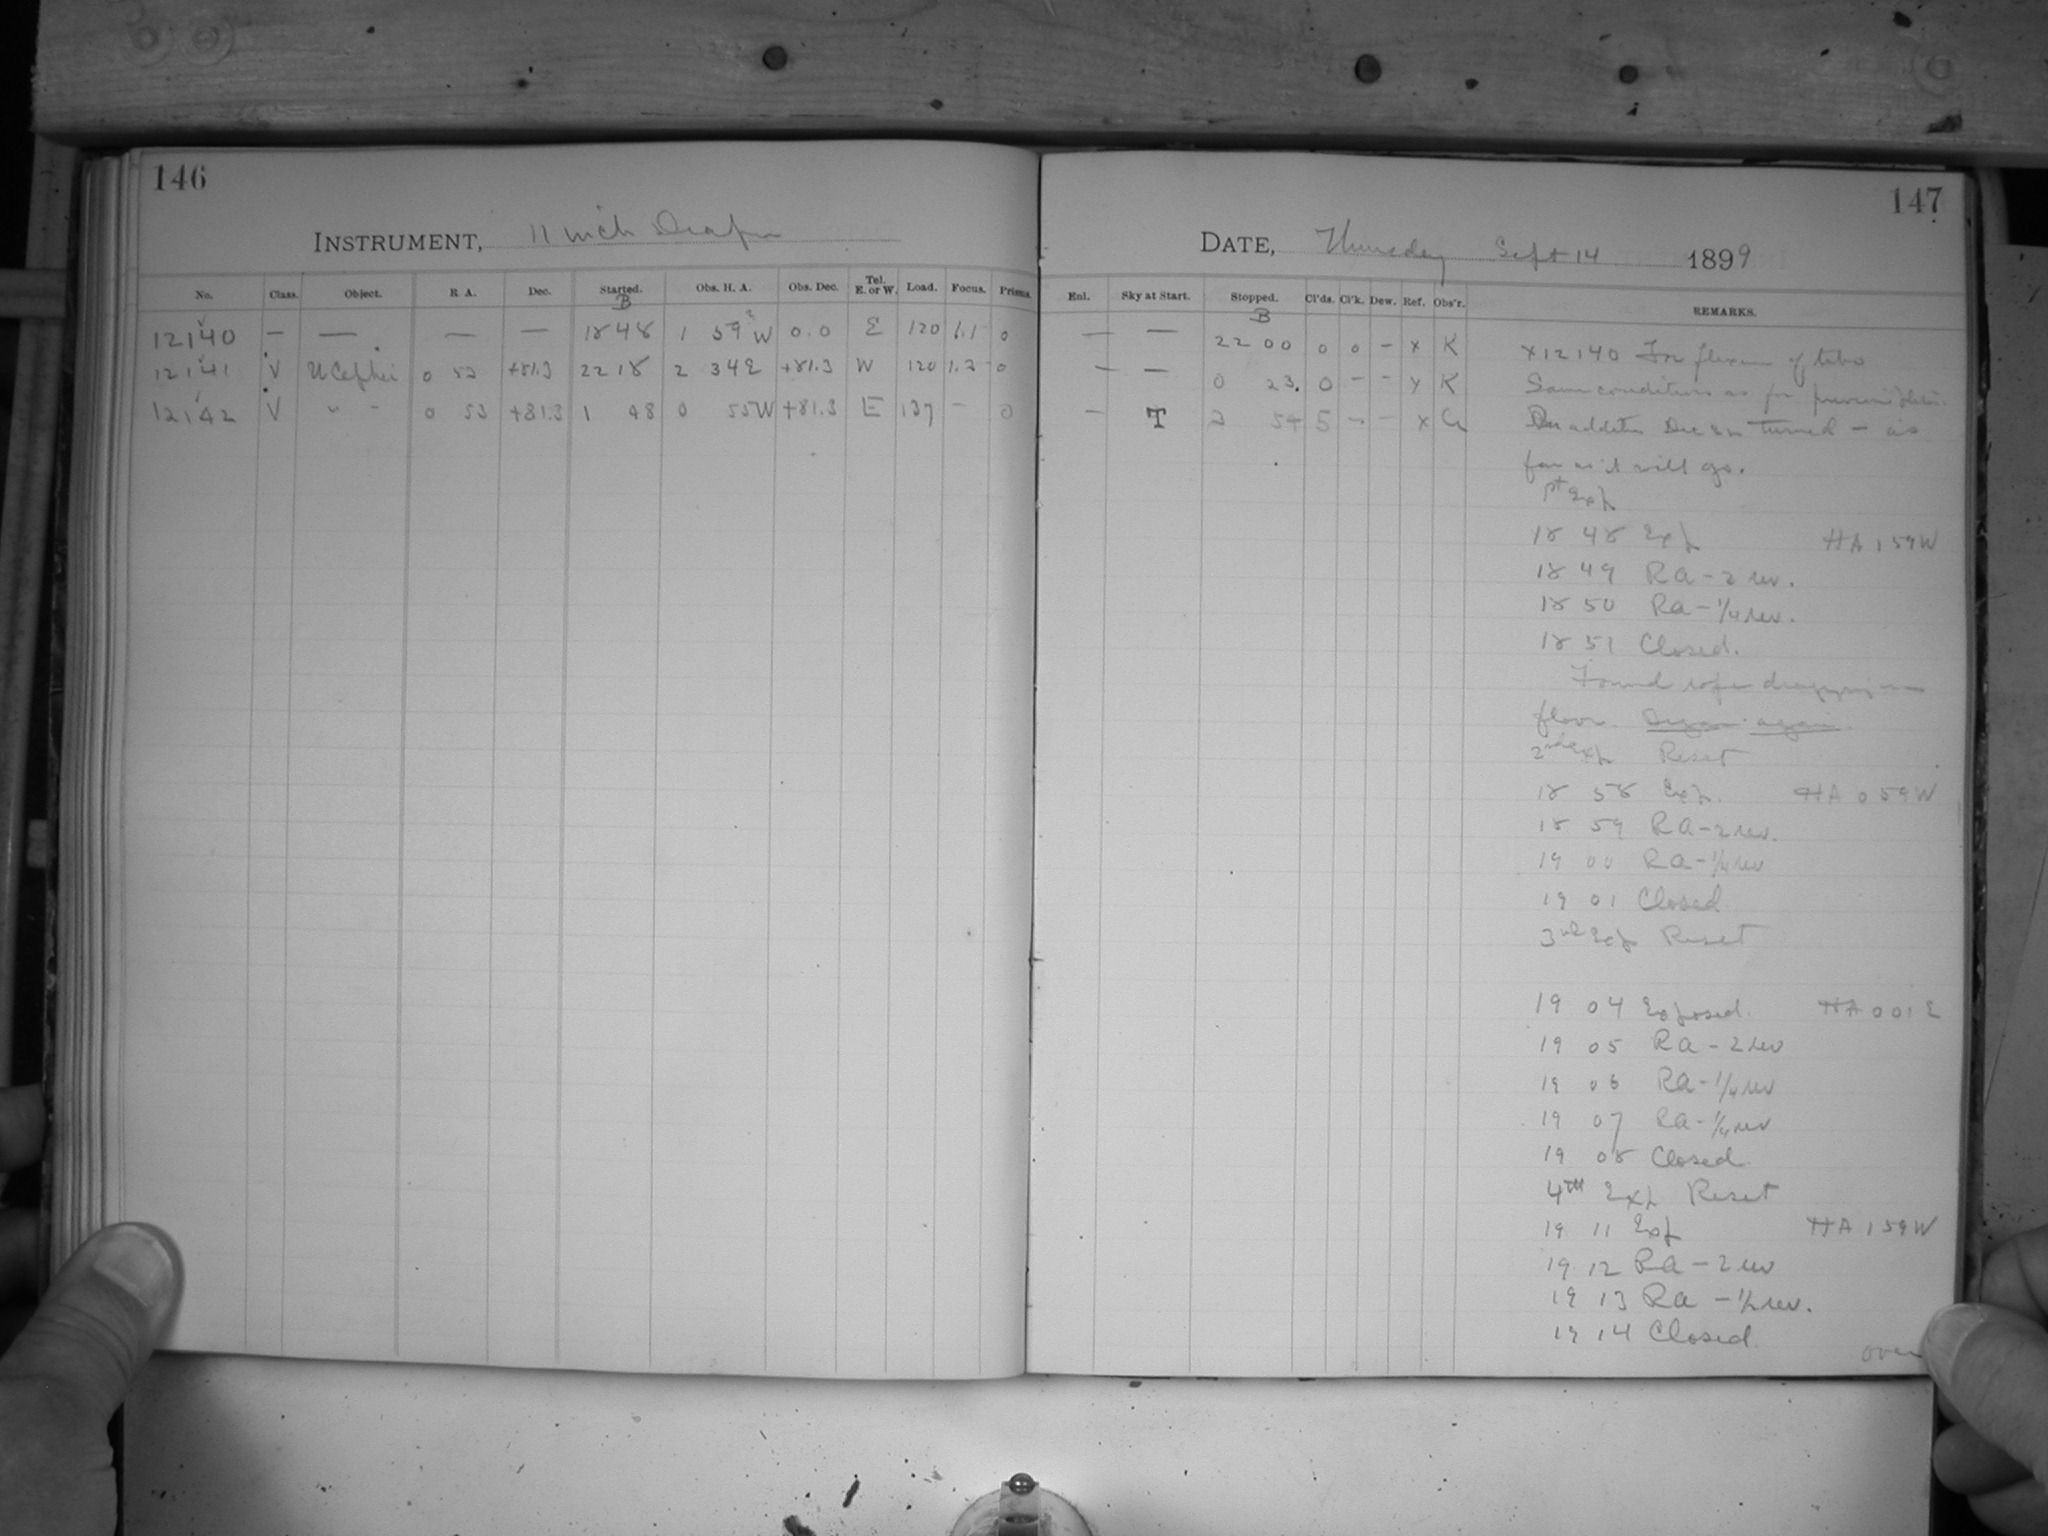 146
INSTRUMENT, 11 inch Draper
No. Class. Object. R A. Dec. Started. Obs. H. A. Obs. Dec. Tel. E. or W. Load. Focus. Prisms.
B
12140 — — — — 18 48 1 59 W 0.0 E 120 1.1 0
12141 V U Cephei 0 53 +81.3 22 18 2 34 E +81.3 W 120 1.2 0
12142 V " " 0 53 +81.3 1 48 0 55 W +81.3 E 137 — 0
147
DATE, Thursday Sept 14 1899
Enl. Sky at Start. Stopped. Cl'ds. Cl'k. Dew. Ref. Obs'r. REMARKS.
B
— — 22 00 0 0 – x K x12140 For flexure of tube
— — 0 23. 0 – – x K Same conditions as for previous plate.
— T 2 54 5 – – x In addition Dec turned – as
far as it will go.
1st Exp
18 48 Exp HA 1 59 W
18 49 RA – 2 rev.
18 50 RA – 1/4 rev.
18 51 Closed.
Found rope dragging on
floor. Began again.
2nd Exp Reset
18 58 Exp. HA 0 59 W
18 59 RA – 2 rev.
19 00 RA – 1/4 rev
19 01 Closed
3rd Exp Reset
19 04 Exposed. HA 0 01 E
19 05 RA – 2 rev
19 06 RA – 1/4 rev
19 07 RA – 1/4 rev
19 08 Closed
4th Exp Reset
19 11 Exp HA 1 59 W
19 12 RA – 2 rev
19 13 RA – 1/2 rev.
19 14 Closed.
over